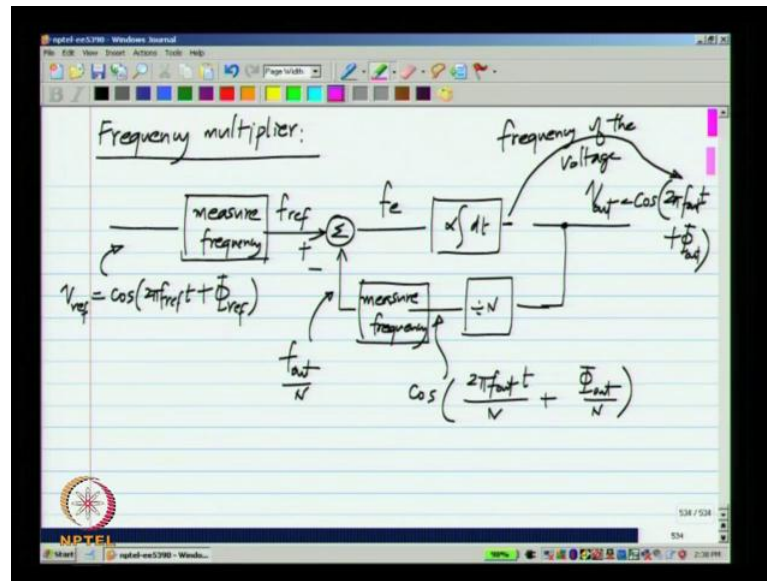 nptel-ee5390 - Windows Journal
File Edit View Insert Actions Tools Help
Page Width
B I
Frequency multiplier:
frequency of the
voltage
measure
frequency
fref
+
-
Σ
fe
α∫dt
Vout = cos(2πfout t
+ Φout)
Vref = cos(2πfref t + Φref)
measure
frequency
÷N
fout/N
cos(2πfout t/N + Φout/N)
NPTEL
534 / 534
534
Start
nptel-ee5390 - Windo...
98%
2:38 PM